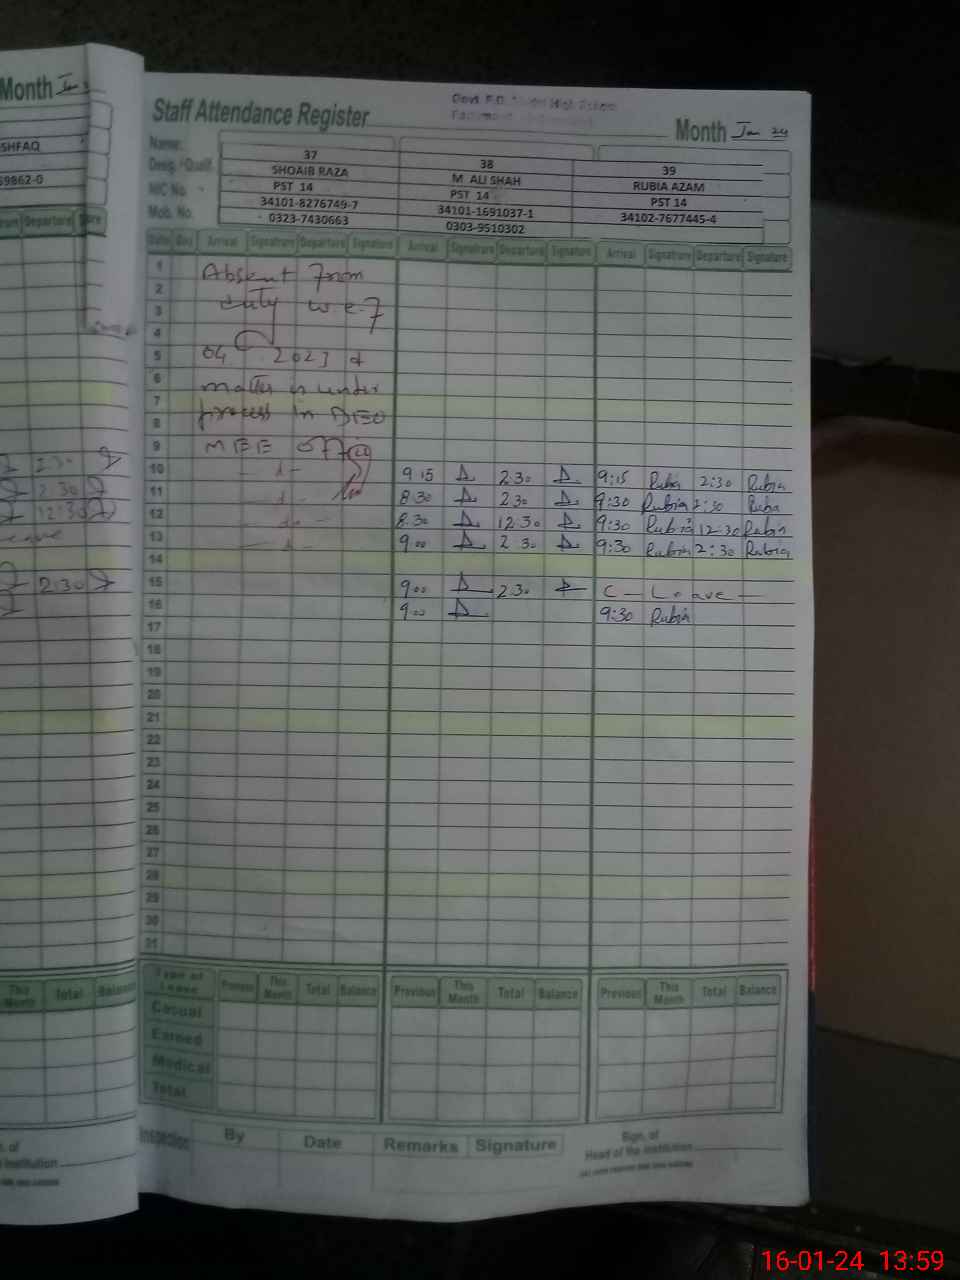 Month Jan
SHFAQ
59862-0
Departure
Staff Attendance Register
Month Jan 24
Name:
37 38 39
Desig./Qualif.
SHOAIB RAZA M. ALI SHAH RUBIA AZAM
NIC No.
PST 14 PST 14 PST 14
34101-8276749-7 34101-1691037-1 34102-7677445-4
Mob. No.
0323-7430663 0303-9510302
Date Day Arrival Signatrure Departure Signature Arrival Signatrure Departure Signature Arrival Signatrure Departure Signature
1 Absent from
2
3 duty w.e.f
4
5 04 2023 &
6 matter is under
7
8 process in DEO
9 MEE office
10 9 15 2:30 9:15 Rubia 2:30 Rubia
11 8 30 2 30 9:30 Rubia 2:30 Rubia
12 8.30 12:30 9:30 Rubia 12:30 Rubia
13 9.00 2 30 9:30 Rubia 2:30 Rubia
14
15 9.00 2 30 C - Leave -
16 9.00 9:30 Rubia
17
18
19
20
21
22
23
24
25
26
27
28
29
30
31
2:30
2:30
12:30
Leave
2:30
This Month Total Balance
Type of Leave Previous This Month Total Balance Previous This Month Total Balance Previous This Month Total Balance
Casual
Earned
Medical
Total
Inspection By Date Remarks Signature
Sign. of
Head of the Institution
Institution
16-01-24 13:59